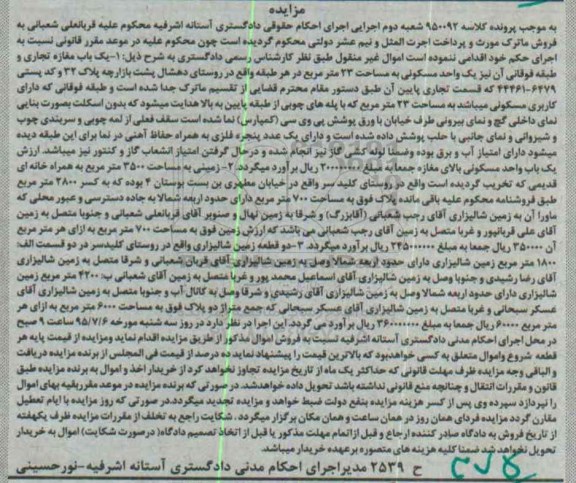 مزایده
به موجب پرونده کلاسه ۹۵۰۰۹۲ شعبه دوم اجرایی اجرای احکام حقوقی دادگستری آستانه اشرفیه محکوم علیه قربانعلی شعبانی به
فروش ماترک مورث و پرداخت اجرت المثل و نیم عشر دولتی محکوم گردیده است چون محکوم علیه در موعد مقرر قانونی نسبت به
اجرای حکم خود اقدامی ننموده است اموال غیر منقول طبق نظر کارشناس رسمی دادگستری به شرح ذیل: ۱-یک باب مغازه تجاری و
طبقه فوقانی آن نیز یک واحد مسکونی به مساحت ۲۳ متر مربع در هر طبقه واقع در روستای دهشال پشت بازارچه پلاک ۳۲ و کد پستی
۴۴۴۶۱-۶۴۷۹ که قسمت تجاری پایین آن طبق دستور مقام محترم قضایی از تقسیم ماترک جدا شده است و طبقه فوقانی که دارای
کاربری مسکونی میباشد به مساحت ۲۳ متر مربع که با پله های چوبی از طبقه پایین به بالا هدایت میشود که بدون اسکلت بصورت بنایی
نمای داخلی گچ و نمای بیرونی طرف خیابان با ورق پوشش پی وی سی (کمپارس) نما شده است سقف فعلی از لمه چوبی و سربندی چوب
و شیروانی و نمای جانبی با حلب پوشش داده شده است و دارای یک عدد پنجره فلزی به همراه حفاظ آهنی در نما برای این طبقه دیده
میشود دارای امتیاز آب و برق بوده وضمنا لوله کشی گاز نیز انجام شده و درحال گرفتن امتیاز انشعاب گاز و کنتور نیز میباشد. ارزش
یک باب واحد مسکونی بالای مغازه جمعا به مبلغ ریال برآورد میگردد. ۲- زمینی به مساحت ۳۵۰۰ متر مربع به همراه خانه ای
قدیمی که تخریب گردیده است واقع در روستای کلید سر واقع در خیابان مطهری بن بست بوستان ۴ بوده که به کسر ۲۸۰۰ متر مربع
طبق فروشنامه محکوم علیه باقی مانده پلاک فوق به مساحت ۷۰۰ متر مربع دارای حدود اربعه شمالا به جاده دسترسی و عبور محلی که
ماورا آن به زمین شالیزاری آقای رجب شعبانی (آقابزرگ) و شرقا به زمین نهال و صنوبر آقای قربانعلی شعبانی و جنوبا متصل به زمین
آقای علی قربانپور و غربا متصل به زمین آقای رجب شعبانی می باشد که ارزش زمین فوق به مساحت ۷۰۰ متر مربع به ازای هر متر مربع
آن ۳۵۰۰۰۰ ریال جمعا به مبلغ ۲۴۵۰۰۰۰۰۰ ریال برآورد میگردد. ۳-دو قطعه زمین شالیزاری واقع در روستای کلیدسر در دو قسمت الف:
۱۸۰۰ متر مربع زمین شالیزاری دارای حدود اربعه شمالا وصل به زمین شالیزاری آقای قربان شعبانی و شرقا متصل به زمین شالیزاری
آقای رضا رشیدی و جنوبا وصل به زمین شالیزاری آقای اسماعیل محمد پور و غربا متصل به زمین آقای شعبانی ب: ۴۲۰۰ متر مربع زمین
شالیزاری دارای حدود اربعه شمالا وصل به زمین شالیزاری آقای رشیدی و شرقا وصل به کانال آب و جنوبا متصل به زمین شالیزاری آقای
عسکر سبحانی و غربا متصل به زمین شالیزاری آقای عسکر سبحانی که جمع متراژ دو پلاک فوق به مساحت ۶۰۰۰ متر مربع به ازای هر
متر مربع ۶۰۰۰۰ ریال جمعا به مبلغ ۳۶۰۰۰۰۰۰۰ ریال برآورد می گردد. این اجرا در نظر دارد در روز سه شنبه مورخه ۹۵/۷/۶ ساعت ۹ صبح
در محل اجرای احکام مدنی دادگستری آستانه اشرفیه نسبت به فروش اموال مذکور از طریق مزایده اقدام نماید ومزایده از قیمت پایه هر
قطعه شروع واموال متعلق به کسی خواهدبود که بالاترین قیمت را پیشنهاد نمایدده درصد از قیمت فی المجلس از برنده مزایده دریافت
و الباقی وجه مزایده ظرف مهلت قانونی که حداکثر یک ماه از تاریخ مزایده تجاوز نخواهد کرد از خریدار اخذ و اموال به برنده مزایده طبق
قانون و مقررات انتقال و چنانچه منع قانونی نداشته باشد تحویل داده خواهدشد. در صورتی که برنده مزایده در موعد مقرربقیه بهای اموال
را نپردازد سپرده وی پس از کسر هزینه مزایده بنفع دولت ضبط خواهد و مزایده تجدید میگردد.در صورتی که روز مزایده با ایام تعطیل
مقارن گردد مزایده فردای همان روز در همان ساعت و همان مکان برگزار میگردد. شکایت راجع به تخلف از مقررات مزایده ظرف یکهفته
از تاریخ فروش به دادگاه صادر کننده ارجاع و قبل ازاتمام مهلت مذکور یا قبل از اتخاذ تصمیم دادگاه( درصورت شکایت) اموال به خریدار
تحویل نخواهد شد ضمنا کلیه هزینه های متصوره برعهده خریدار میباشد.
ح ۲۵۳۹ مدیراجرای احکام مدنی دادگستری آستانه اشرفیه-نورحسینی